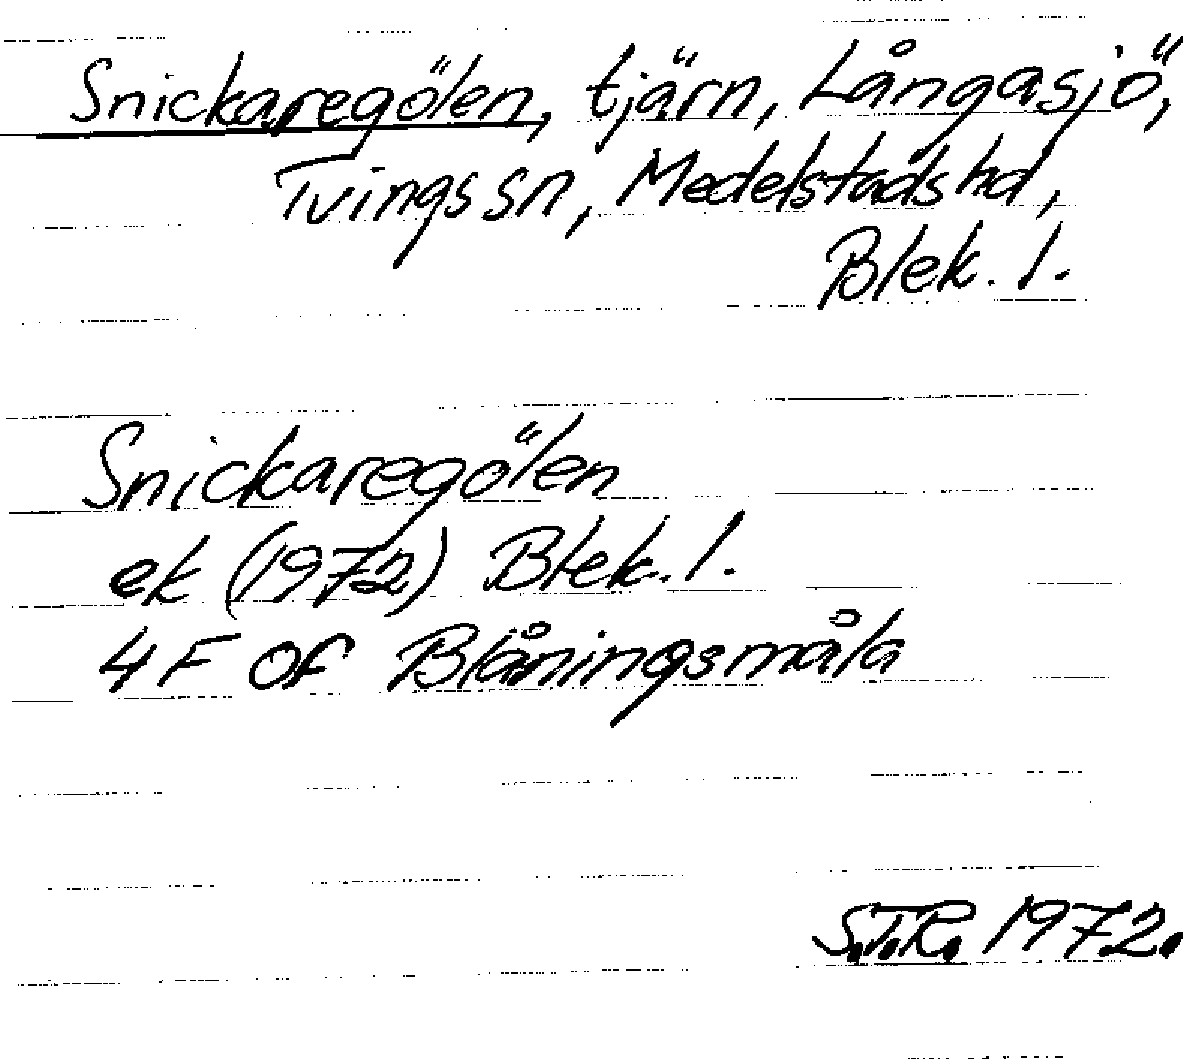 Snickaregölen, tjärn, Långasjö,
Tvings sn, Medelstads hd,
Blek. l.
Snickaregölen
ek (1972) Blek. l.
4 F Of Blåningsmåla
S.T.R. 1972.